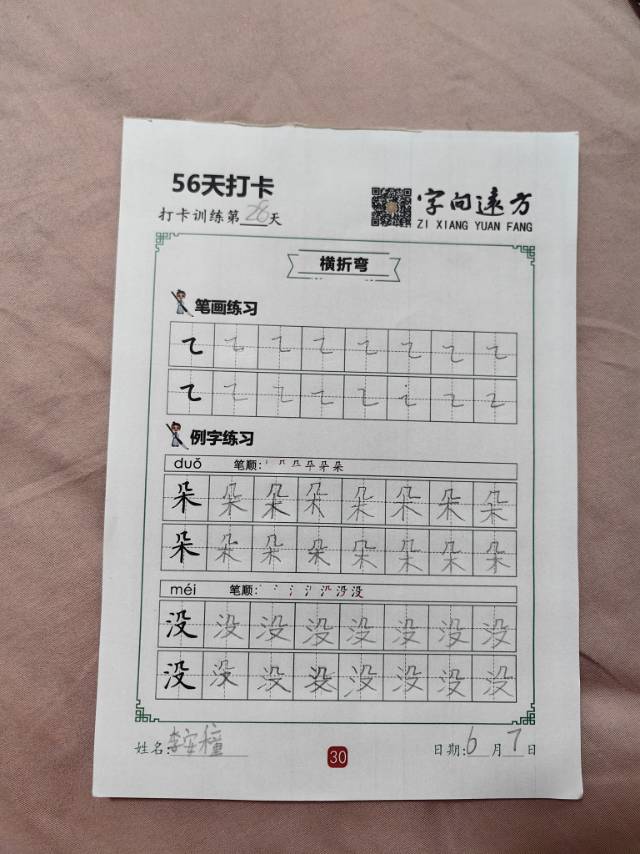 56天打卡
打卡训练第28天
字向远方
ZI XIANG YUAN FANG
横折弯
笔画练习
㇍ ㇍ ㇍ ㇍ ㇍ ㇍ ㇍ ㇍
㇍ ㇍ ㇍ ㇍ ㇍ ㇍ ㇍ ㇍
例字练习
duǒ 笔顺:
朵 朵 朵 朵 朵 朵 朵 朵
朵 朵 朵 朵 朵 朵 朵 朵
méi 笔顺:
没 没 没 没 没 没 没 没
没 没 没 没 没 没 没 没
姓名:李安
30
日期:6月7日